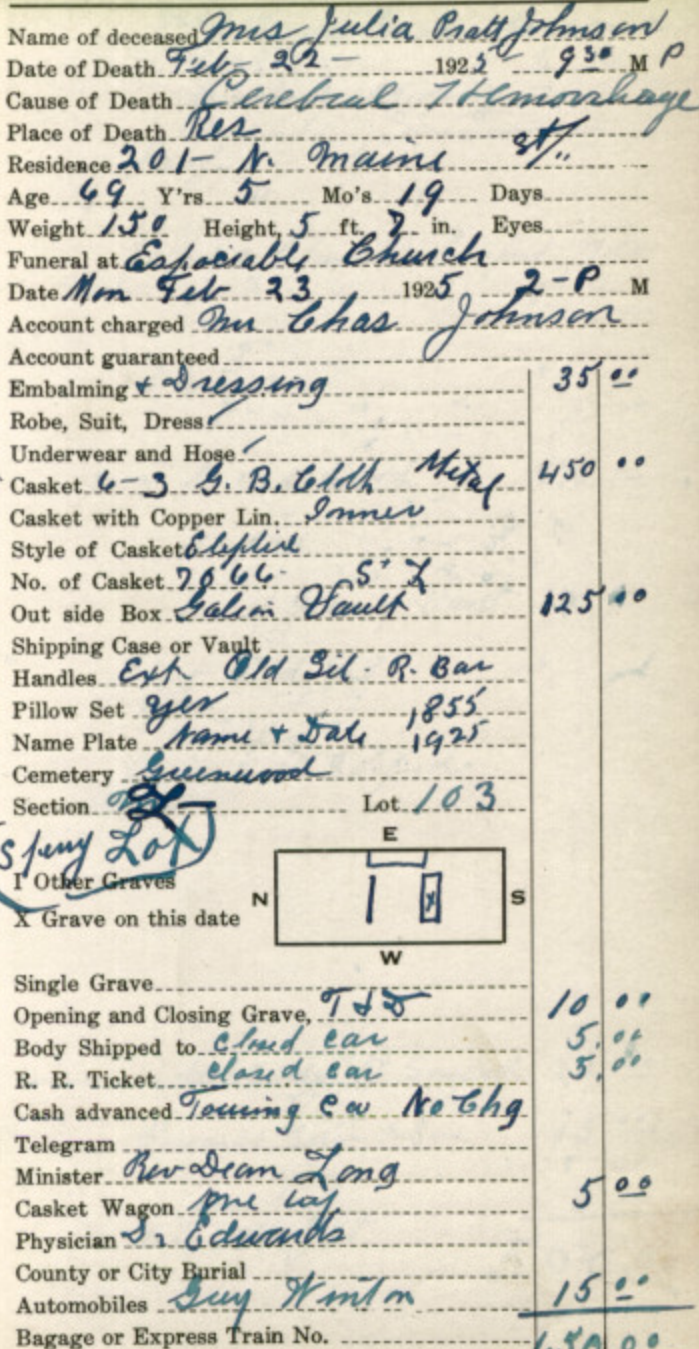 Name of deceased Mrs Julia Pratt Johnson
Date of Death Feb - 22 - 1925 9 30 M P
Cause of Death Cerebral Hemorrhage
Place of Death Res
Residence 201 - N. Maine St.
Age 69 Y'rs 5 Mo's 19 Days
Weight 150 Height, 5 ft. 7 in. Eyes
Funeral at Espociable Church
Date Mon Feb 23 1925 2-P M
Account charged Mr Chas Johnson
Account guaranteed
Embalming + Dressing 35 00
Robe, Suit, Dress
Underwear and Hose
Casket 6-3 G. B. Cloth Metal 450 00
Casket with Copper Lin. Inner
Style of Casket
No. of Casket 7066
Out side Box Vault 125 00
Shipping Case or Vault
Handles Ext Old Sil. R. Bar
Pillow Set yes 1855
Name Plate Name + Date 1925
Cemetery Greenwood
Section Lot 103
Lot
E
I Other Graves
N S
X Grave on this date
X
W
Single Grave
Opening and Closing Grave, T & D 10 00
Body Shipped to Closed car 5.00
R. R. Ticket closed car 5.00
Cash advanced Touring Car No Chg
Telegram
Minister Rev Dean Long
Casket Wagon 5 00
Physician Dr Edwards
County or City Burial
Automobiles Guy Winton 15 00
Bagage or Express Train No.